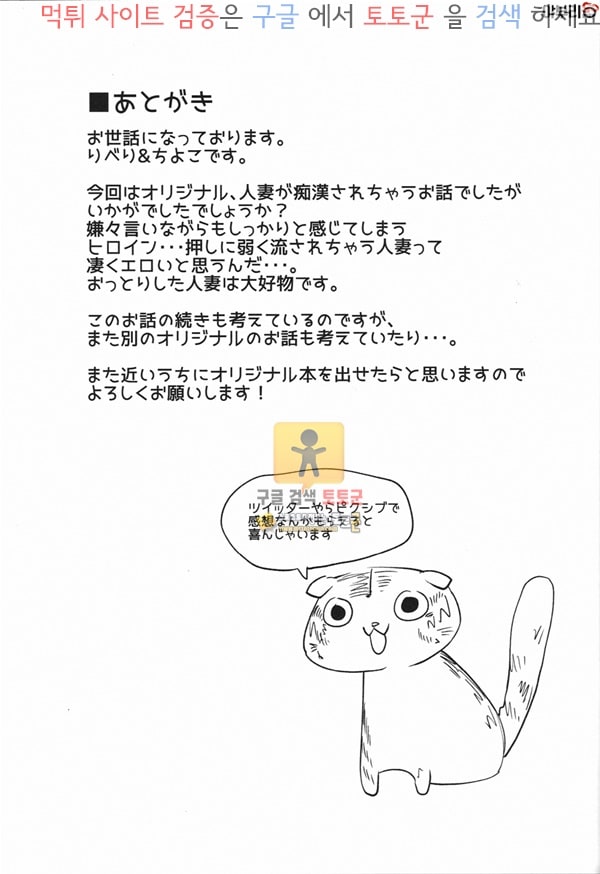 먹튀 사이트 검증은 구글 에서 토토군 을 검색 하세요
■あとがき
お世話になっております。
りべり&ちよこです。
今回はオリジナル、人妻が痴漢されちゃうお話でしたが
いかがでしたでしょうか?
嫌々言いながらもしっかりと感じてしまう
ヒロイン・・・押しに弱く流されちゃう人妻って
凄くエロいと思うんだ・・・。
おっとりした人妻は大好物です。
このお話の続きも考えているのですが、
また別のオリジナルのお話も考えていたり・・・。
また近いうちにオリジナル本を出せたらと思いますので
よろしくお願いします!
구글 검색 토토군
ツイッターやらピクシブで
感想なんかもらえると
喜んじゃいます